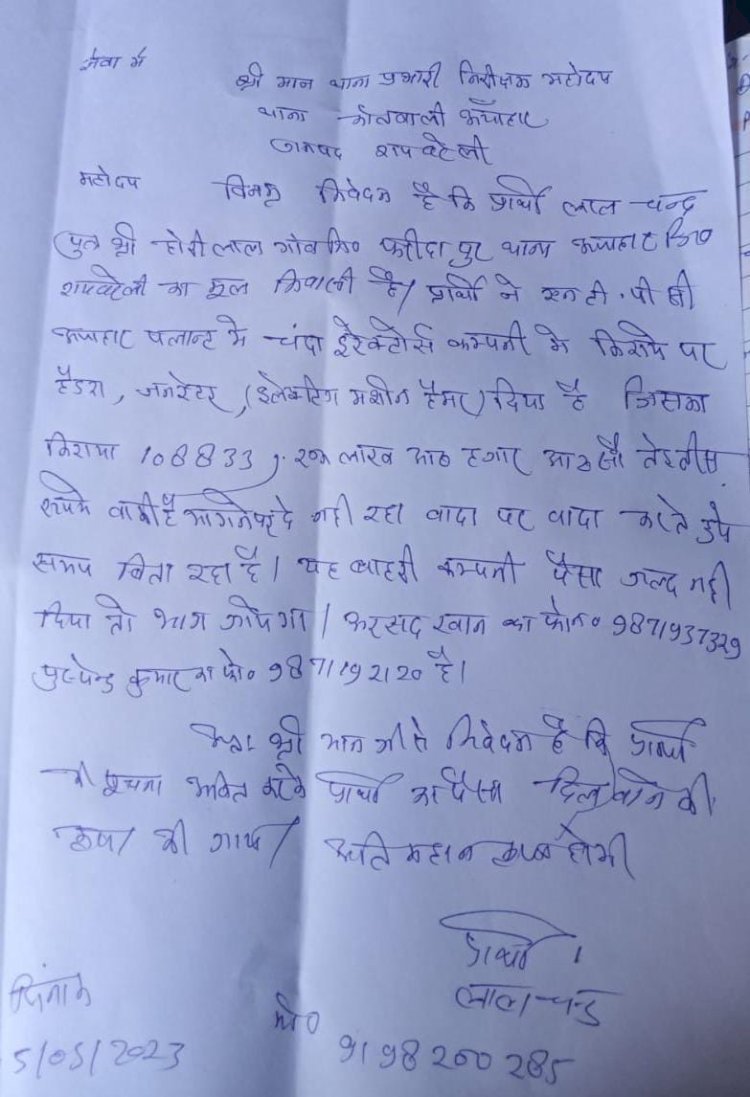 सेवा में
श्री मान थाना प्रभारी निरीक्षक महोदय
थाना कोतवाली ऊँचाहार
जनपद रायबरेली
महोदय विनम्र निवेदन है कि प्रार्थी लाल चन्द्र
पुत्र श्री होरी लाल गाँव नि० फरीदा पुर थाना ऊचाहार जि०
रायबरेली का मूल निवासी है। प्रार्थी ने एन टी. पी सी
ऊचाहार पलान्ट मे चंदा इरेक्टोर्स कम्पनी मे किराये पर
हैडरा, जनरेटर, (इलेक्ट्रिग मशीन हैमर) दिया है जिसका
किराया 108833, एक लाख आठ हजार आठ सौ तेंतीस
रूपये बाकी है मागने पर दे नही रहा वादा पर वादा करते हुये
समय बिता रहा है। यह बाहरी कम्पनी पैसा जल्द नही
दिया तो भाग जायेगा। अरसद खान का फोन० 9871937329
पुस्पेन्द्र कुमार का फो० 9871192120 है।
अतः श्री मान जी से निवेदन है कि प्रार्थी
की सूचना अंकित करके प्रार्थी का पैसा दिलवाने की
कृपा की जाय। अति महान कृपा होगी
प्रार्थी।
लाल चन्द्र
दिंनाक
मो० 9198200285
5/05/2023